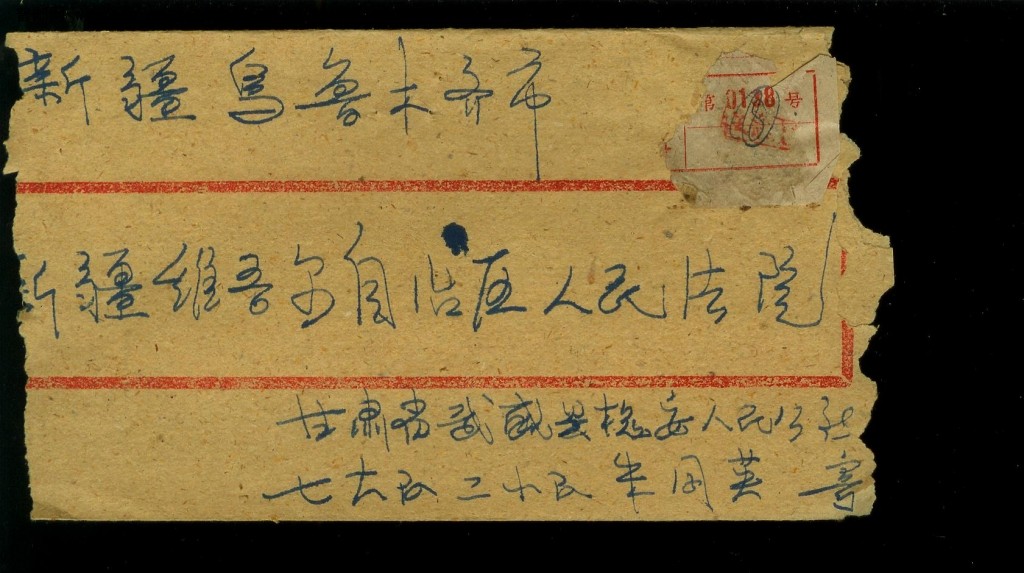 新疆乌鲁木齐市
第 0188 号
新疆维吾尔自治区人民法院
甘肃省武威县 人民公社
七大队二小队 朱 英 寄